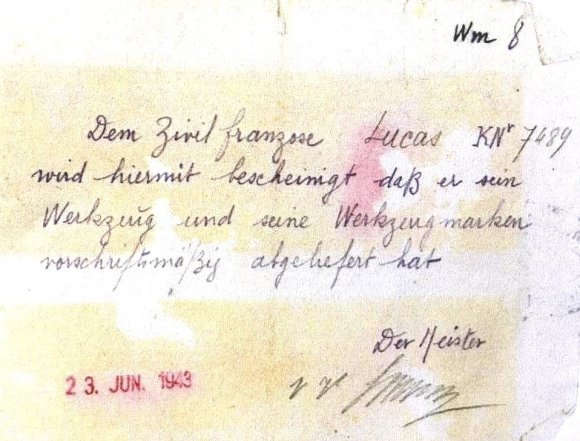 Wm 8
Dem Zivil franzose Lucas KNr 7489
wird hiermit bescheinigt daß er sein
Werkzeug und seine Werkzeugmarken
vorschriftsmäßig abgeliefert hat
Der Meister
23. JUN. 1943